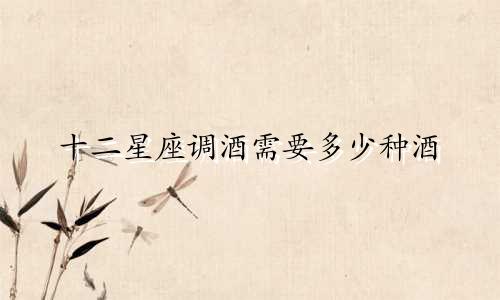 十二星座调酒需要多少种酒